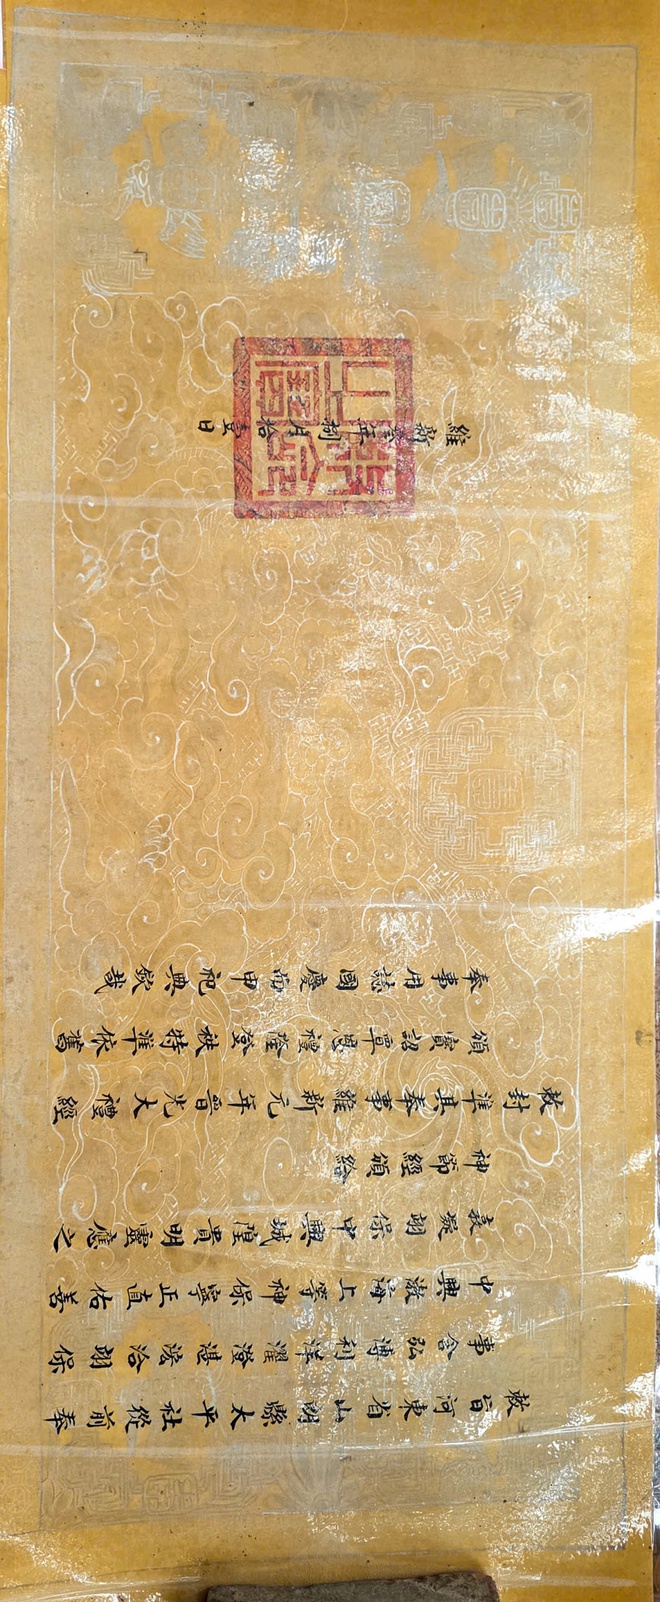 敕旨河東省山朗縣太平社從前奉
事含弘溥利洋濯澄湛洽翊保
中興澈海上等神保寧正直佑善
敦凝翊保中興城隍貴明靈應之
神節經頒給
敕封準其奉事維新元年晉光大禮經
頒寶詔覃恩禮隆登秩特準依舊
奉事用誌國慶而申祀典欽哉
維新叁年捌月拾壹日